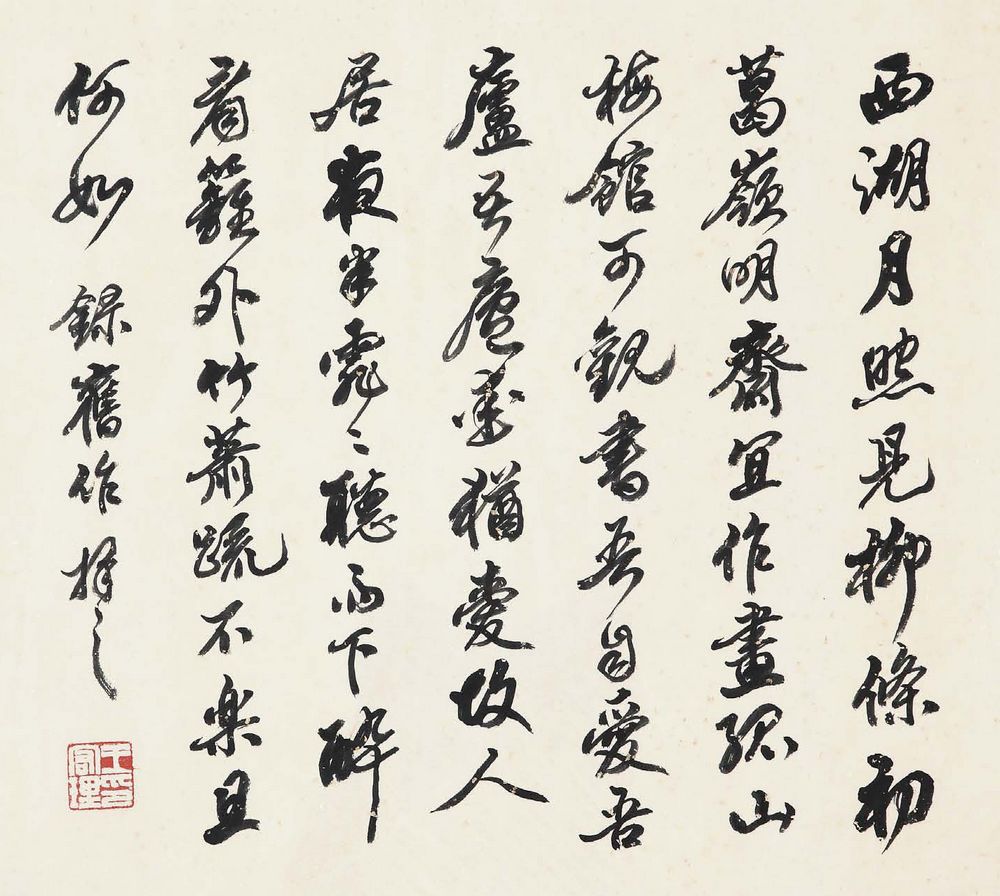 西湖月照見柳條初
葛嶺明齋宜作畫孤山
梅館可觀書吾自愛吾
廬吾廬猶愛故人
居夜半霏々聽雨下醉
看籬外竹蕭疏不樂且
何如 錄舊作 擇之